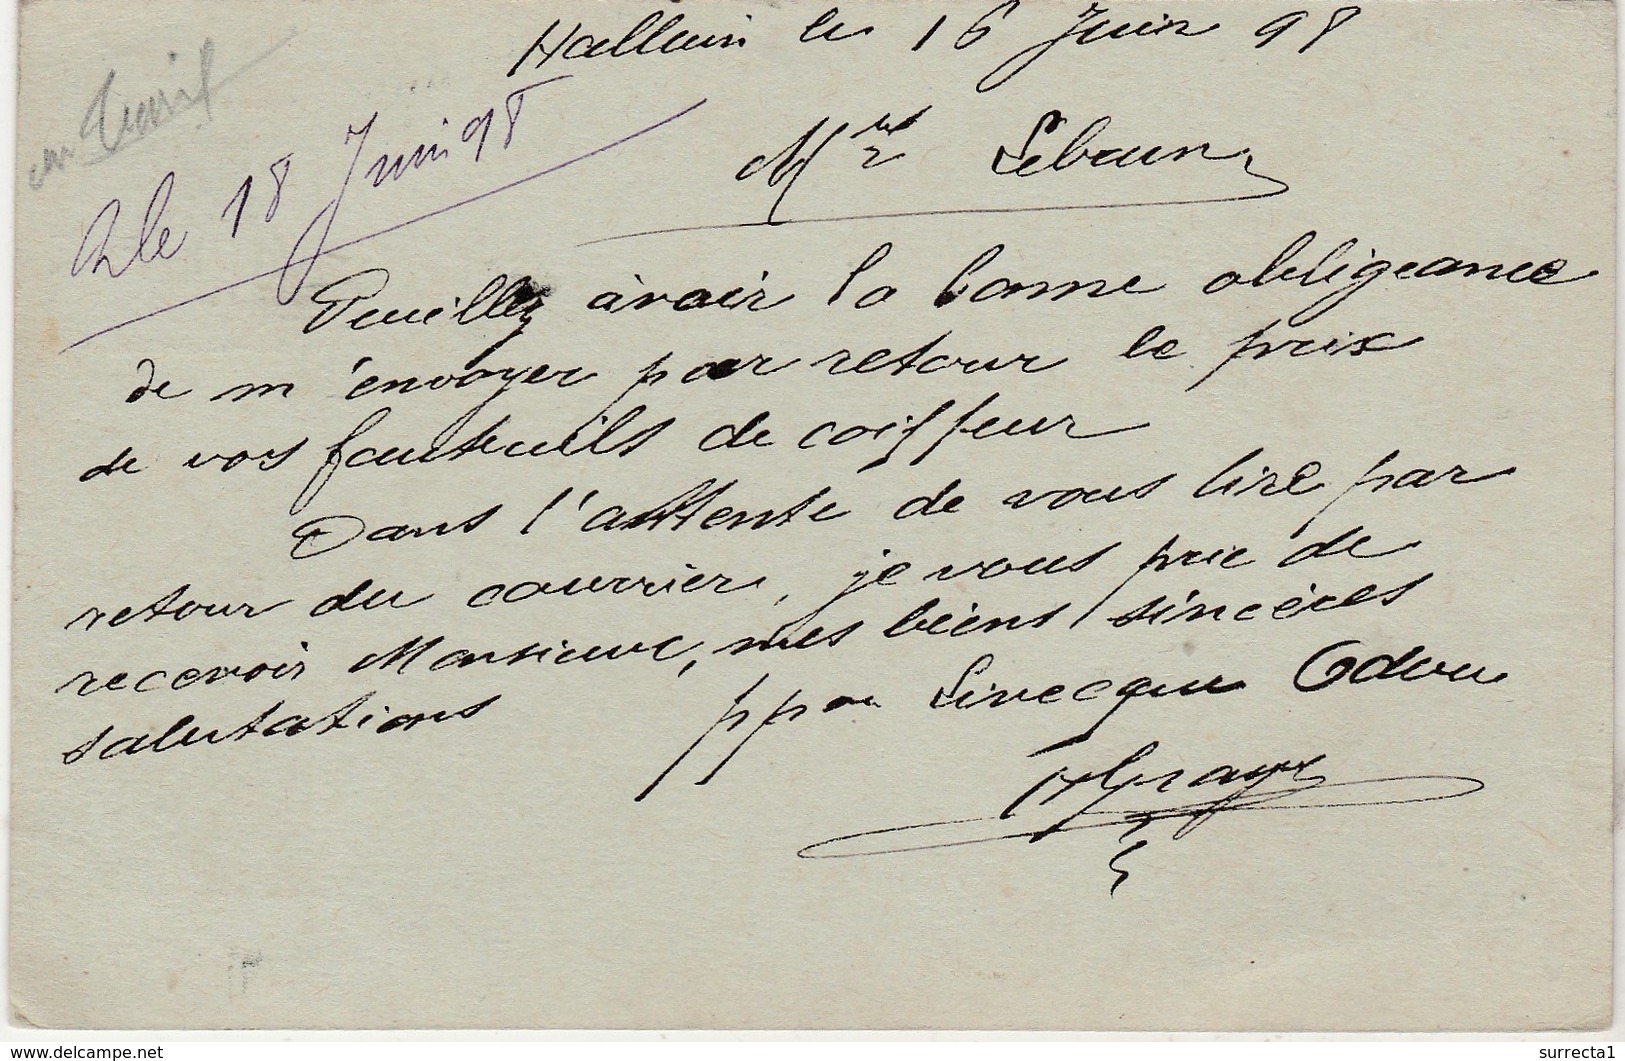 Halluin le 16 Juin 98
R le 18 Juin 98
Lebrun
Veuillez avoir la bonne obligeance
de m'envoyer par retour le prix
de vos fauteuils de coiffeur
Dans l'attente de vous lire par
retour du courrier, je vous prie de
recevoir Monsieur, mes biens sincères
salutations
Odou
www.delcampe.net
surrecta1